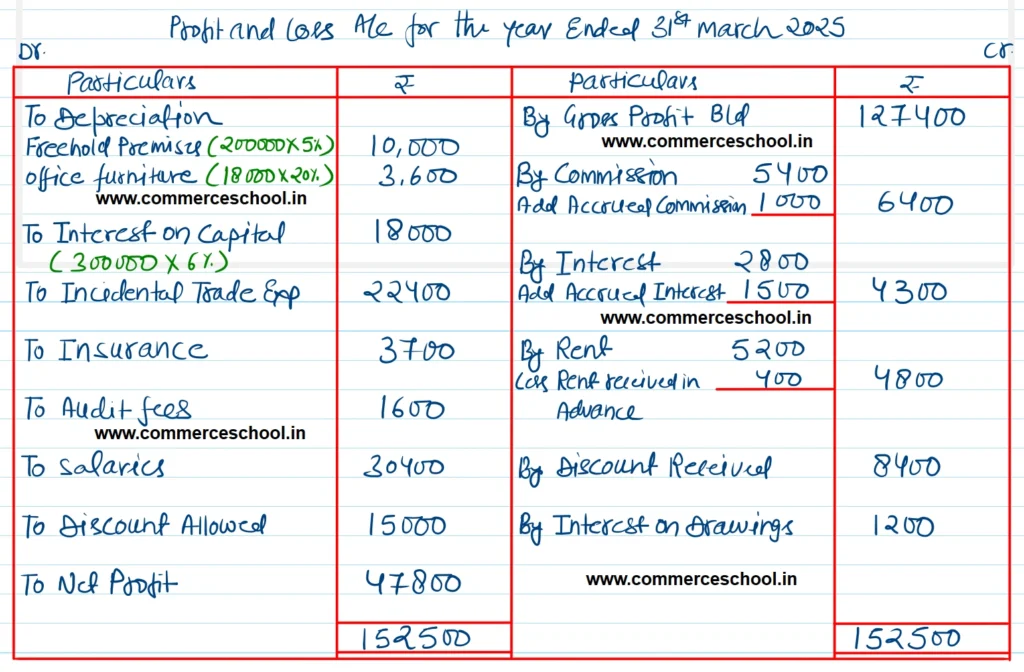 Profit and Loss A/c for the year Ended 31st march 2025
Dr. Cr.
Particulars ₹ Particulars ₹
To Depreciation By Gross Profit B/d 127400
Freehold Premises (200000 x 5%) 10,000 www.commerceschool.in
office furniture (18000 x 20%) 3,600 By Commission 5400
www.commerceschool.in Add Accrued Commission 1000 6400
To Interest on Capital 18000
(300000 x 6%) By Interest 2800
To Incidental Trade Exp 22400 Add Accrued Interest 1500 4300
www.commerceschool.in
To Insurance 3700 By Rent 5200
Less Rent received in 400 4800
To Audit fees 1600 Advance
www.commerceschool.in
To Salaries 30400 By Discount Received 8400
To Discount Allowed 15000 By Interest on Drawings 1200
To Net Profit 47800 www.commerceschool.in
152500 152500